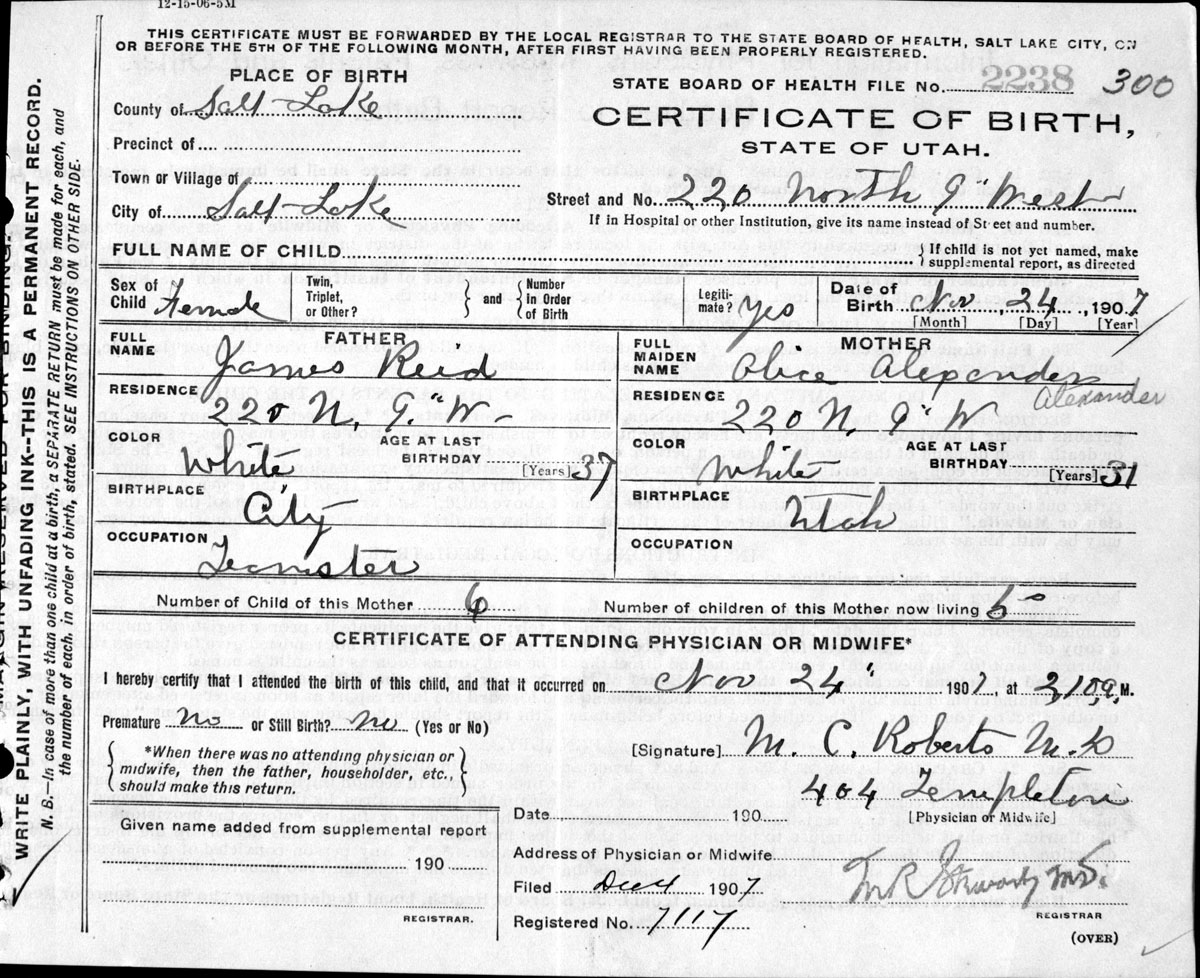 12-15-06-5M
THIS CERTIFICATE MUST BE FORWARDED BY THE LOCAL REGISTRAR TO THE STATE BOARD OF HEALTH, SALT LAKE CITY, ON
OR BEFORE THE 5TH OF THE FOLLOWING MONTH, AFTER FIRST HAVING BEEN PROPERLY REGISTERED.
PLACE OF BIRTH
County of Salt Lake
Precinct of
Town or Village of
City of Salt Lake
STATE BOARD OF HEALTH FILE No. 2238 300
CERTIFICATE OF BIRTH,
STATE OF UTAH.
Street and No. 220 North 9 West
If in Hospital or other Institution, give its name instead of Street and number.
FULL NAME OF CHILD
If child is not yet named, make
supplemental report, as directed
Sex of Child Female
Twin, Triplet, or Other?
and
Number in Order of Birth
Legiti-mate? yes
Date of Birth Nov. 24, 1907
[Month] [Day] [Year]
FATHER
FULL NAME James Reid
RESIDENCE 220 N, 9" W
COLOR White
AGE AT LAST BIRTHDAY 37 [Years]
BIRTHPLACE City
OCCUPATION Teamster
MOTHER
FULL MAIDEN NAME Alice Alexander
Alexander
RESIDENCE 220 N, 9" W
COLOR White
AGE AT LAST BIRTHDAY 31 [Years]
BIRTHPLACE Utah
OCCUPATION
Number of Child of this Mother 6
Number of children of this Mother now living
CERTIFICATE OF ATTENDING PHYSICIAN OR MIDWIFE*
I hereby certify that I attended the birth of this child, and that it occurred on Nov 24 1907, at M.
Premature no or Still Birth? no (Yes or No)
*When there was no attending physician or
midwife, then the father, householder, etc.,
should make this return.
[Signature] M. C. Roberts M.D
404 Templeton
[Physician or Midwife]
Date 190
Given name added from supplemental report
190
REGISTRAR.
Address of Physician or Midwife
Filed 1907
Registered No. 7117
REGISTRAR
(OVER)
MARGIN RESERVED FOR BINDING.
WRITE PLAINLY, WITH UNFADING INK--THIS IS A PERMANENT RECORD.
N. B.—In case of more than one child at a birth, a SEPARATE RETURN must be made for each, and
the number of each, in order of birth, stated. SEE INSTRUCTIONS ON OTHER SIDE.